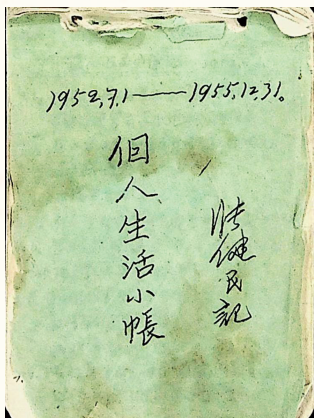 1952,7,1——1955,12,31。
個人生活小帳
張健民記